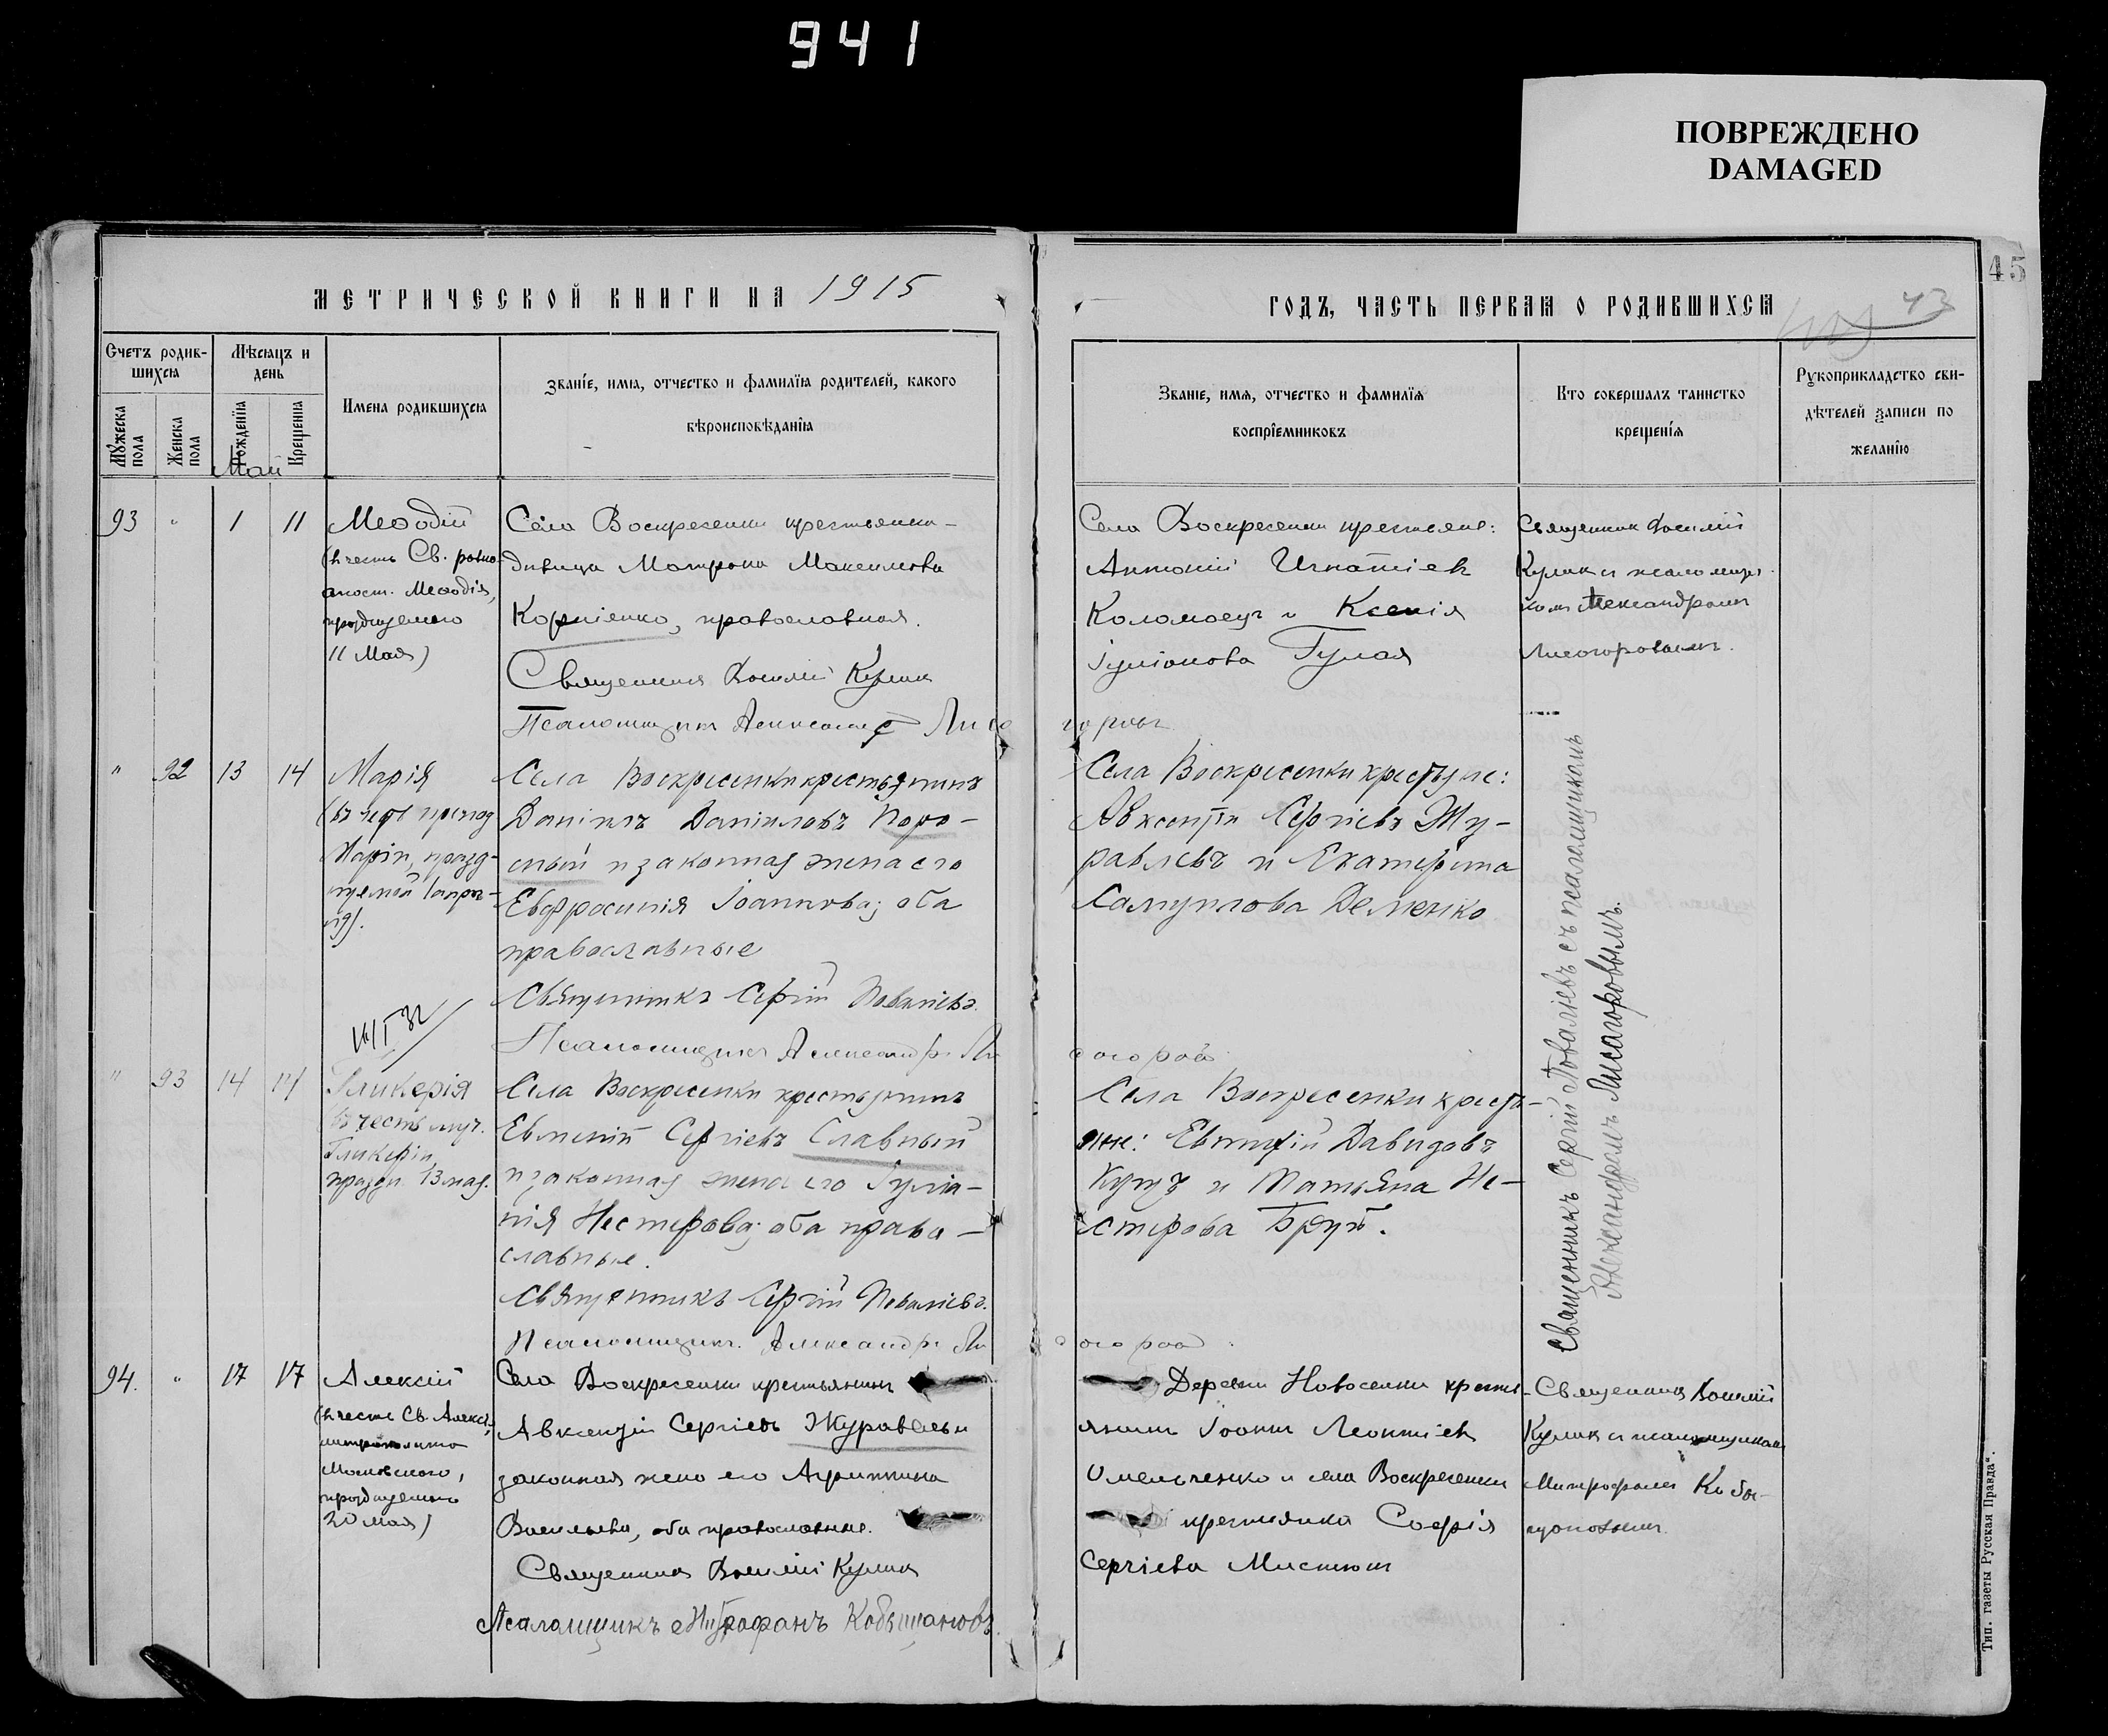 941
ПОВРЕЖДЕНО
DAMAGED
45
МЕТРИЧЕСКОЙ КНИГИ НА 1915
ГОДЪ, ЧАСТЬ ПЕРВАЯ О РОДИВШИХСЯ
43
Счетъ родив-
шихся
Мѣсяцъ и
день
Мужеска пола
Женска пола
Рожденїя
Крещенїя
Май
Имена родившихся
Званїе, имя, отчество и фамилїя родителей, какого
вѣроисповѣданїя
Званїе, имя, отчество и фамилїя
воспрїемниковъ
Кто совершалъ таинство
крещенїя
Рукоприкладство сви-
дѣтелей записи по
желанїю
93 " 1 11
Меѳодій
(въ честь Св. равно-
апост. Меѳодія,
празднуемаго
11 Мая)
Села Воскресенки крестьянка-
дѣвица Матрона Максимова
Корніенко, православная.
Священникъ Василій Кулик
Псаломщикъ Александр Лисо
горовъ
Села Воскресенки крестьяне:
Антоній Игнатіевъ
Коломоецъ и Ксенія
Іуліанова Гулая
Священник Василій
Кулик и псаломщи-
ком Александромъ
Лисогоровымъ.
" 92 13 14
Марія
(въ честь препод
Маріи, празд-
нуемой 1 апрѣ-
ля).
Села Воскресенки крестьянинъ
Даніилъ Даніиловъ Поро-
сный и законная жена его
Евфросинія Іоаннова; оба
православные
Священникъ Сергій Поваліевъ.
Псаломщикъ Александръ Ли
согоров
Села Воскресенки крестьяне:
Авксентій Сергіевъ Жу-
равлевъ и Екатерина
Самуилова Деменко
Священникъ Сергій Поваліевъ съ псаломщикомъ
Александромъ Лисогоровымъ.
" 93 14 14
Гликерія
(въ честь муч.
Гликеріи,
праздн. 13 мая.
Села Воскресенки крестьянинъ
Евменій Сергіевъ Славный
и законная жена его Іуліа-
нія Нестерова; оба право-
славные.
Священникъ Сергій Поваліевъ.
Псаломщикъ Александръ Ли
согоров
Села Воскресенки кресть-
яне: Евтихій Давидовъ
Куцъ и Татьяна Не-
стерова Брутъ.
94. " 17 17
Алексій
(въ честь Св. Алексія,
митрополита
Московского,
празднуемаго
20 мая)
Села Воскресенки крестьянинъ
Авксентій Сергіевъ Журавель и
законная жена его Агриппина
Васильева, оба православные.
Священникъ Василій Кулик
Псаломщикъ Митрофанъ Кобыщановъ.
Деревни Новоселки кресть-
янинъ Іоаннъ Леонтіевъ
Омельченко и села Воскресенки
крестьянка Софія
Сергіева Мистюк
Священник Василій
Кулик и псаломщикомъ
Митрофаномъ Кобы-
щановымъ.
Тип. газеты „Русская Правда“.